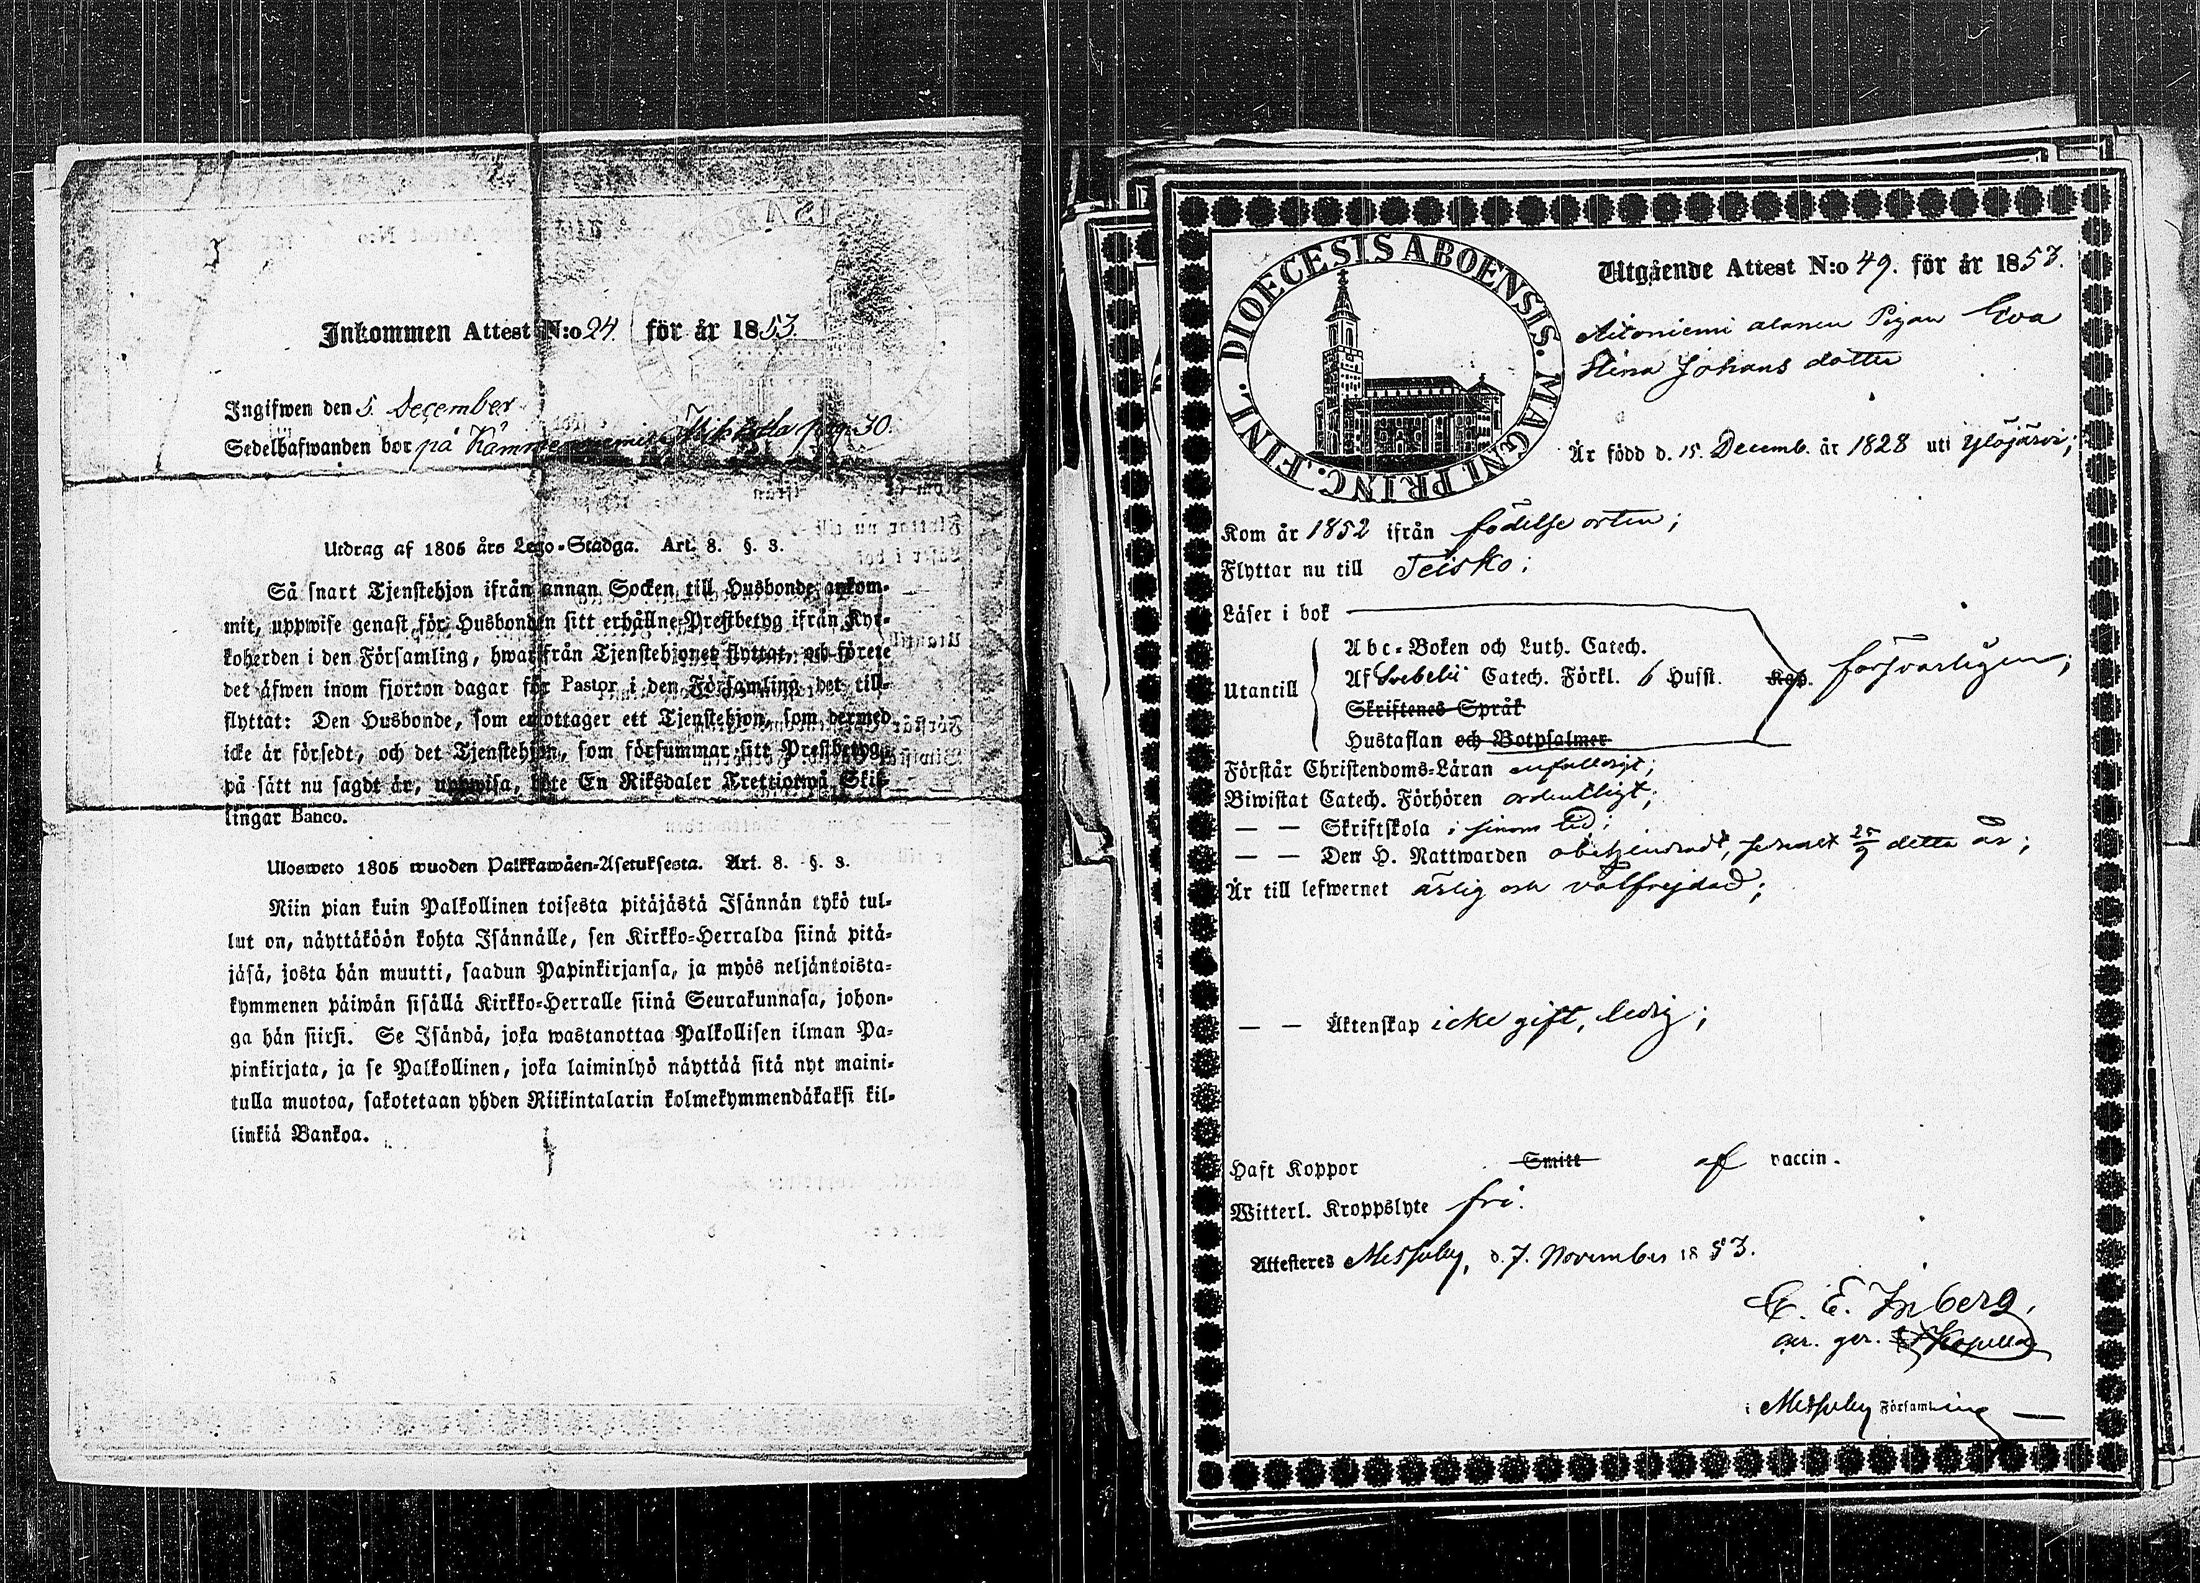 Inkommen Attest N:o 24. för år 1853.
Ingifwen den 5. December
Sedelhafwanden bor på pag. 30.
Utdrag af 1805 års Lego-Stadga. Art. 8. §. 3.
Så snart Tjenstehjon ifrån annan Socken till Husbonde ankom-
mit, uppwise genast för Husbonden sitt erhållne Prestbetyg ifrån Kyr-
koherden i den Församling, hwarifrån Tjenstehjonet flyttat, och förete
det äfwen inom fjorton dagar för Pastor i den Församling det till-
flyttat: Den Husbonde, som emottager ett Tjenstehjon, som dermed
icke är försedt, och det Tjenstehjon, som försummar sitt Prestbetyg,
på sätt nu sagdt är, uppwisa, böte En Riksdaler Trettiotwå Skil-
lingar Banco.
Ulosweto 1805 wuoden Palkkawäen-Asetuksesta. Art. 8. §. 3.
Niin pian kuin Palkollinen toisesta pitäjästä Isännän tykö tul-
lut on, näyttäköön kohta Isännälle, sen Kirkko-Herralda siinä pitä-
jäsä, josta hän muutti, saadun Papinkirjansa, ja myös neljäntoista-
kymmenen päiwän sisällä Kirkko-Herralle siinä Seurakunnasa, johon-
ga hän siirsi. Se Isändä, joka wastanottaa Palkollisen ilman Pa-
pinkirjata, ja se Palkollinen, joka laiminlyö näyttää sitä nyt maini-
tulla muotoa, sakotetaan yhden Riikintalarin kolmekymmendäkaksi kil-
linkiä Bankoa.
DIOECESIS ABOENSIS. MAGNI PRINC. FINL.
Utgående Attest N:o 49. för år 1853.
Aitoniemi alanen Pigan Eva
Stina Johans dotter
Är född d. 15. Decemb. år 1828 uti Ylöjärvi;
Kom år 1852 ifrån födelse orten;
Flyttar nu till Teisko;
Läser i bok
Abc-Boken och Luth. Catech.
Utantill Af Svebelii Catech. Förkl. 6 Hufst. Kap. försvarligen;
Skriftenes Språk
Hustaflan och Botpsalmer
Förstår Christendoms-Läran enfalldigt;
Biwistat Catech. Förhören ordentligt;
— — Skriftskola i sinom tid;
— — Den H. Nattwarden obehindradt, senast 25/9 detta år;
Är till lefwernet ärlig och välfrejdad;
— — Äktenskap icke gift, ledig;
Haft Koppor Smitt af vaccin.
Witterl. Kroppslyte fri.
Attesteras Messuby, d. 7. November 1853.
C. E.
i Messuby Församling